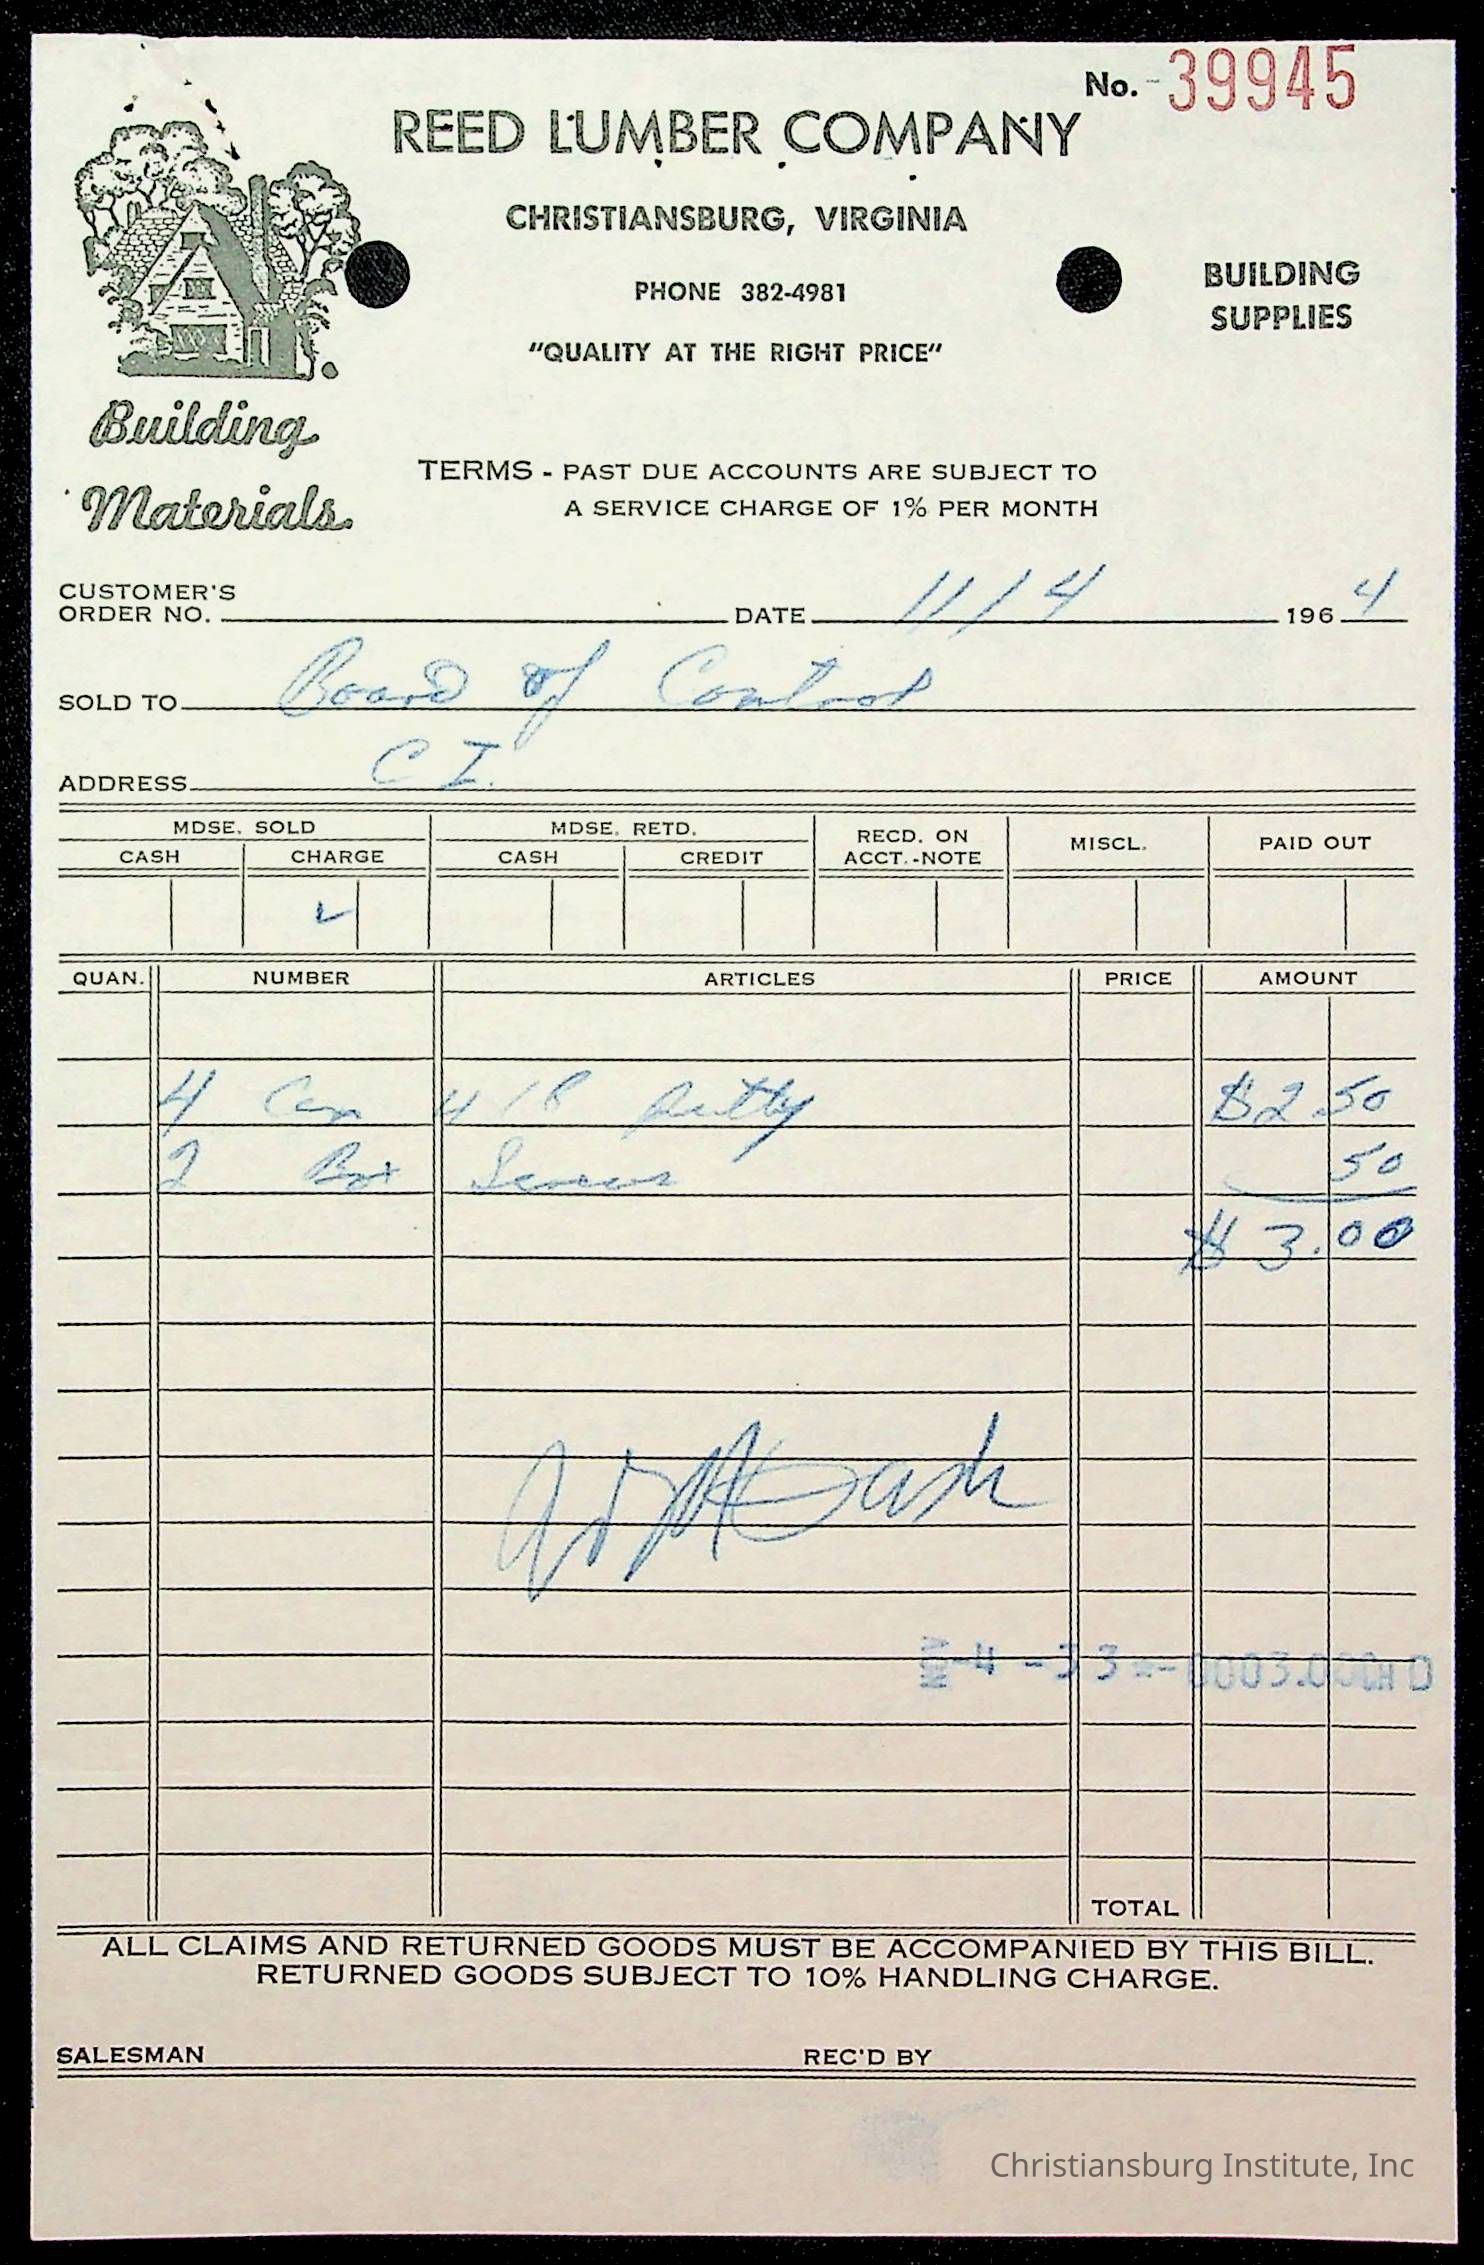 No. 39945
REED LUMBER COMPANY
CHRISTIANSBURG, VIRGINIA
PHONE 382-4981
"QUALITY AT THE RIGHT PRICE"
BUILDING
SUPPLIES
Building
Materials.
TERMS - PAST DUE ACCOUNTS ARE SUBJECT TO
A SERVICE CHARGE OF 1% PER MONTH
CUSTOMER'S
ORDER NO. DATE 11/4 1964
SOLD TO Board of Control
ADDRESS C I.
MDSE. SOLD MDSE. RETD. RECD. ON ACCT.-NOTE MISCL. PAID OUT
CASH CHARGE CASH CREDIT
✓
QUAN. NUMBER ARTICLES PRICE AMOUNT
4 Can 4 Putty $2 50
2 Box Screws 50
$ 3.00
NOV -4 -33 0003.00
TOTAL
ALL CLAIMS AND RETURNED GOODS MUST BE ACCOMPANIED BY THIS BILL.
RETURNED GOODS SUBJECT TO 10% HANDLING CHARGE.
SALESMAN REC'D BY
Christiansburg Institute, Inc